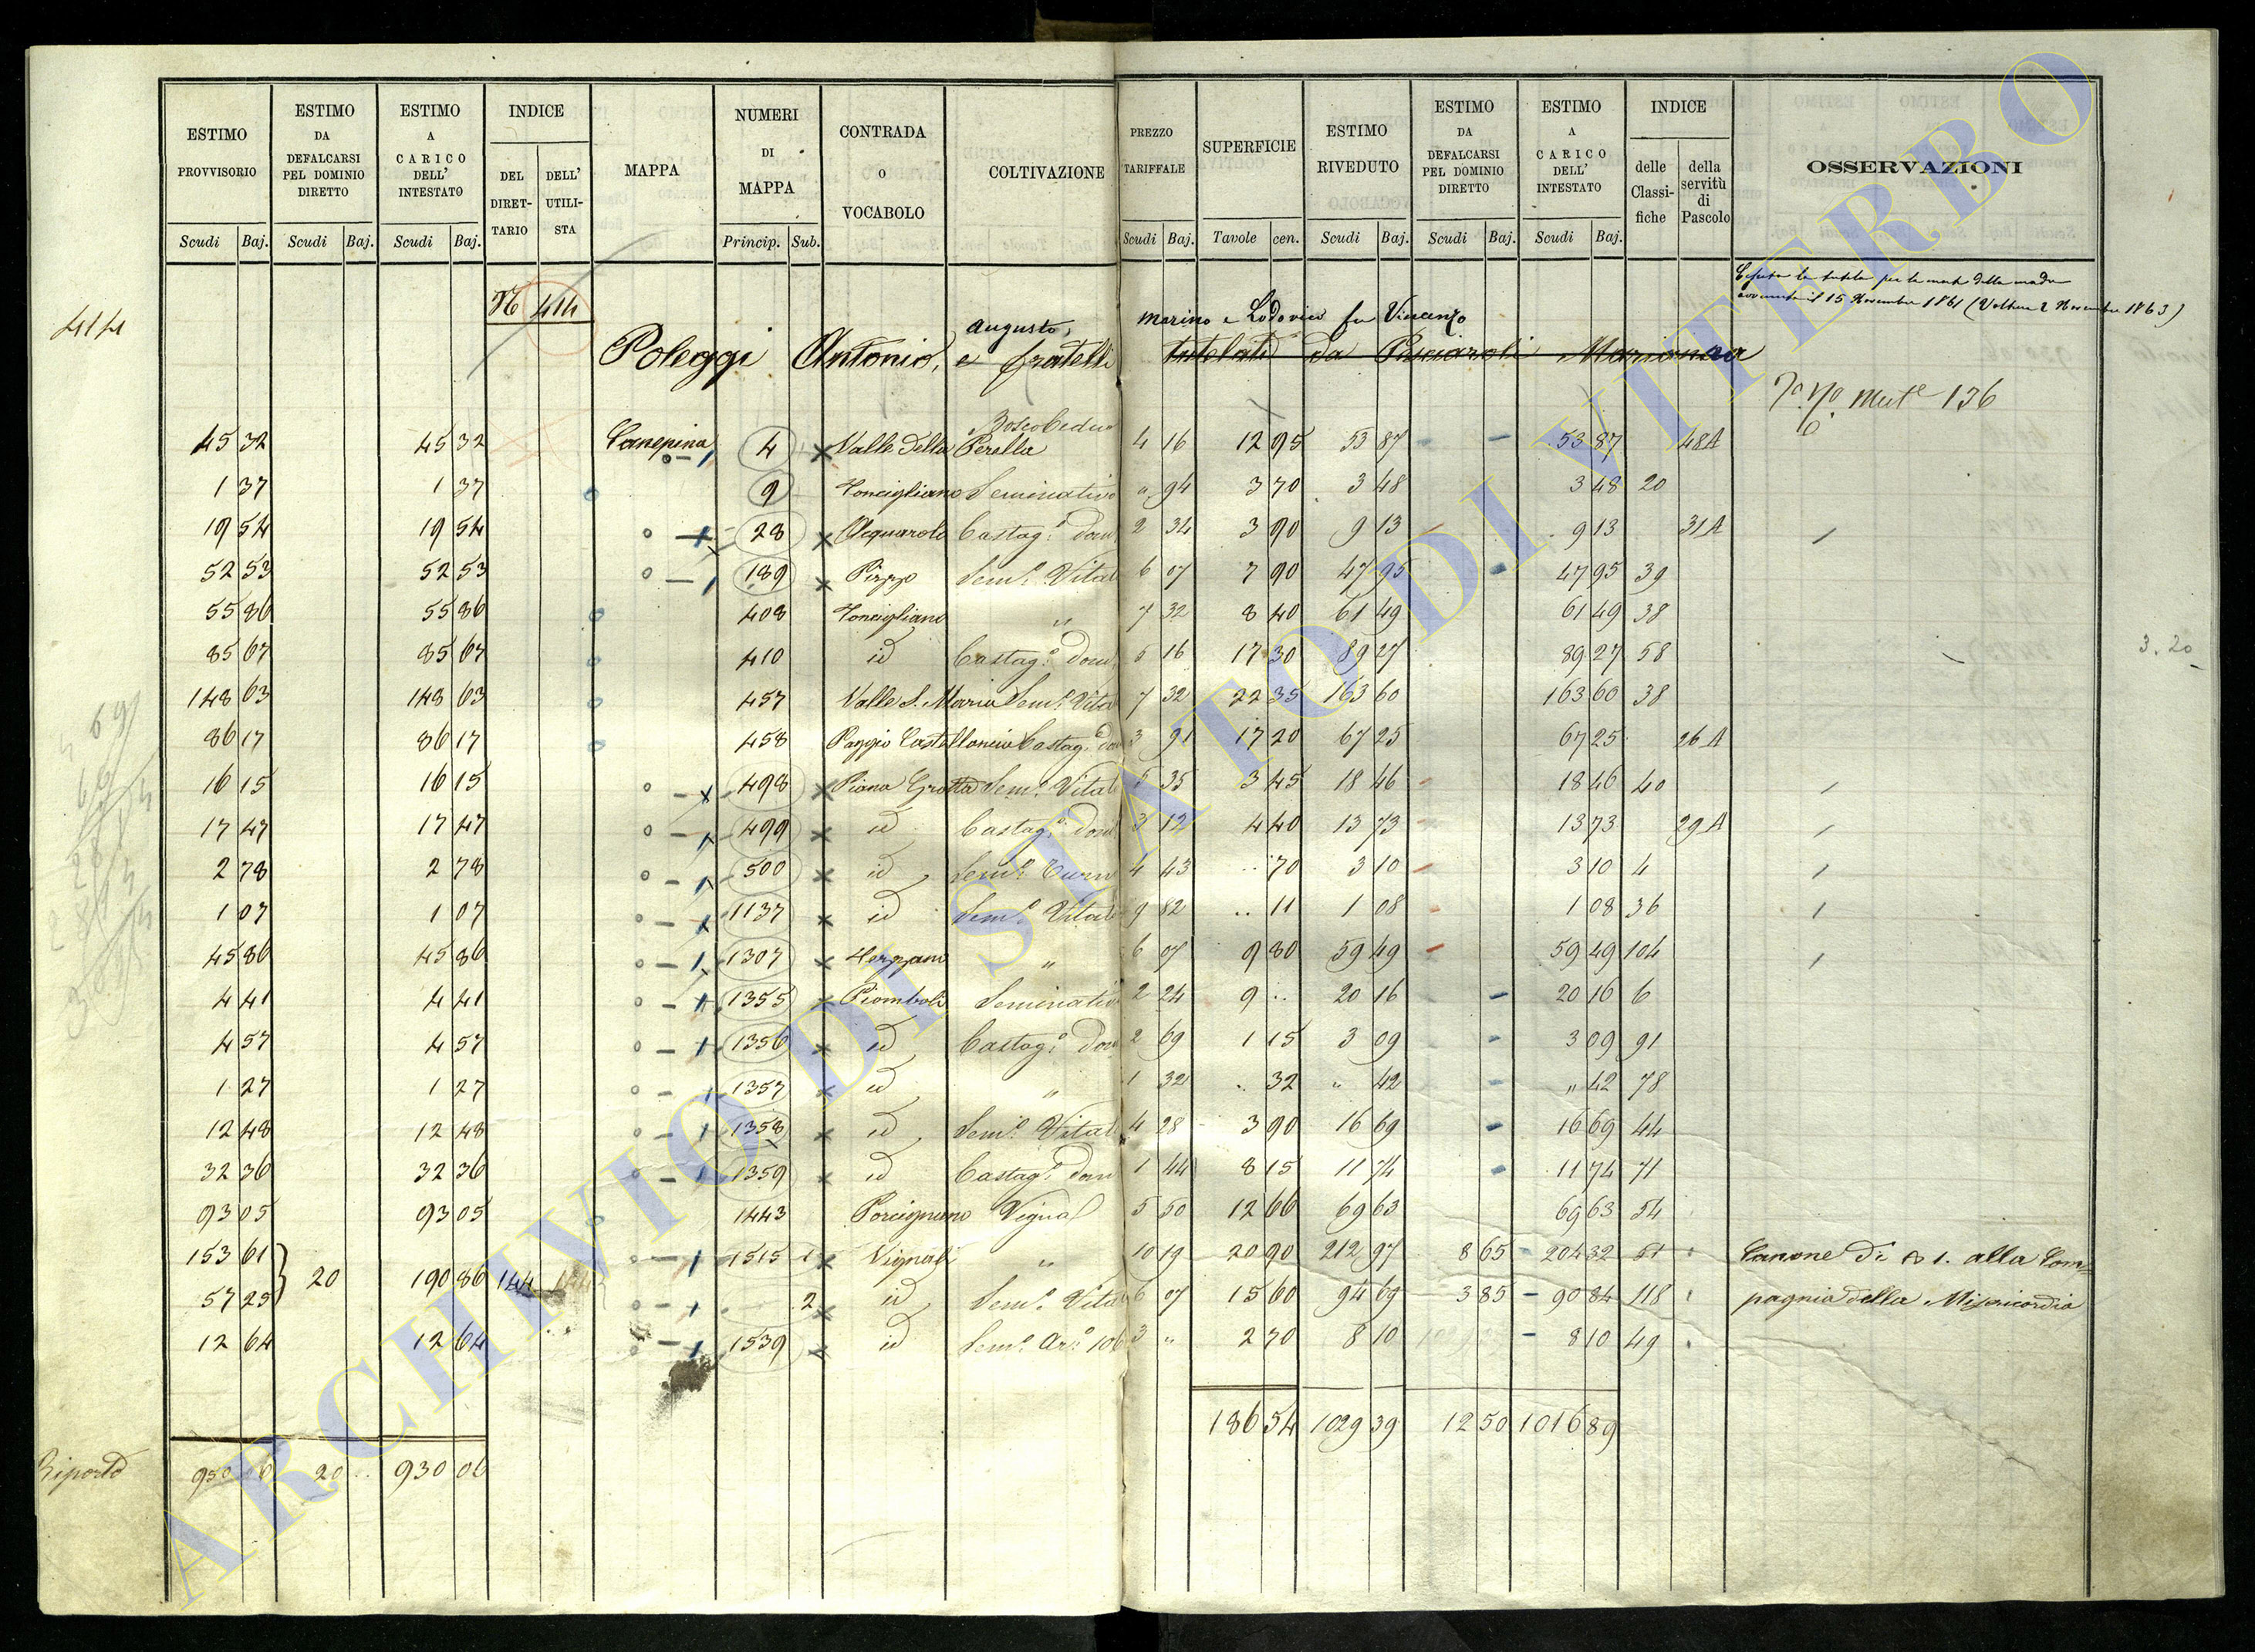 ESTIMO PROVVISORIO | ESTIMO DA DEFALCARSI PEL DOMINIO DIRETTO | ESTIMO A CARICO DELL' INTESTATO | INDICE DEL DIRETTARIO | DELL' UTILISTA | MAPPA | NUMERI DI MAPPA | CONTRADA O VOCABOLO | COLTIVAZIONE | PREZZO TARIFFALE | SUPERFICIE | ESTIMO RIVEDUTO | ESTIMO DA DEFALCARSI PEL DOMINIO DIRETTO | ESTIMO A CARICO DELL' INTESTATO | INDICE delle Classifiche | della servitù di Pascolo | OSSERVAZIONI
Scudi Baj. Scudi Baj. Scudi Baj. Princip. Sub. Scudi Baj. Tavole cen. Scudi Baj. Scudi Baj. Scudi Baj.
Cessata la tutela per la morte della madre
avvenuta il 15 Novembre 1861 (Voltura 2 Novembre 1863)
414 N 414
Augusto, Marino e Lodovico fu Vincenzo
Poleggi Antonio, e fratelli tutelati da Pisciaroli Marianna
Mut.e 136
Bosco Ceduo
45 32 45 32 Canepina 4 Valle Della Perella 4 16 12 95 53 87 53 87 48A
1 37 1 37 9 Toncigliano Seminativo " 94 3 70 3 48 3 48 20
19 54 19 54 28 Acquarole Castag.o Dom 2 34 3 90 9 13 9 13 31A
52 53 52 53 189 Pizzo Sem.o Vitat 6 07 7 90 47 95 47 95 39
55 86 55 86 408 Toncigliano " 7 32 8 40 61 49 61 49 38
85 67 85 67 410 id Castag.o Dom 5 16 17 30 89 27 89 27 58 3.20
148 63 148 63 457 Valle S. Maria Sem.o Vitat 7 32 22 35 163 60 163 60 38
86 17 86 17 458 Poggio Castelloncio Castag.o Dom 3 91 17 20 67 25 67 25 26A
16 15 16 15 498 Piana Grotta Sem.o Vitat 5 35 3 45 18 46 18 46 40
17 47 17 47 499 id Castag.o Dom 3 12 4 40 13 73 13 73 29A
2 78 2 78 500 id Sem.o 4 43 .. 70 3 10 3 10 4
1 07 1 07 1137 id Sem.o Vitat 9 82 .. 11 1 08 1 08 36
45 86 45 86 1307 " 6 07 9 80 59 49 59 49 104
4 41 4 41 1355 Piomboli Seminativo 2 24 9 .. 20 16 20 16 6
4 57 4 57 1356 id Castag.o Dom 2 69 1 15 3 09 3 09 91
1 27 1 27 1357 id " 1 32 .. 32 " 42 " 42 78
12 48 12 48 1358 id Sem.o Vitat 4 28 3 90 16 69 16 69 44
32 36 32 36 1359 id Castag.o Dom 1 44 8 15 11 74 11 74 71
93 05 93 05 1443 Porcignano Vignal 5 50 12 66 69 63 69 63 54
153 61 1515 1 Vignali " 10 19 20 90 212 97 8 65 204 32 51 Canone di 1. alla Com=
57 25 20 190 86 144 2 id Sem.o Vitat 6 07 15 60 94 69 3 85 90 84 118 pagnia della Misericordia
12 64 12 64 1539 id Sem.o Ar.o 106 3 " 2 70 8 10 8 10 49
186 54 1029 39 12 50 1016 89
Riporto 950 06 20 .. 930 06
ARCHIVIO DI STATO DI VITERBO